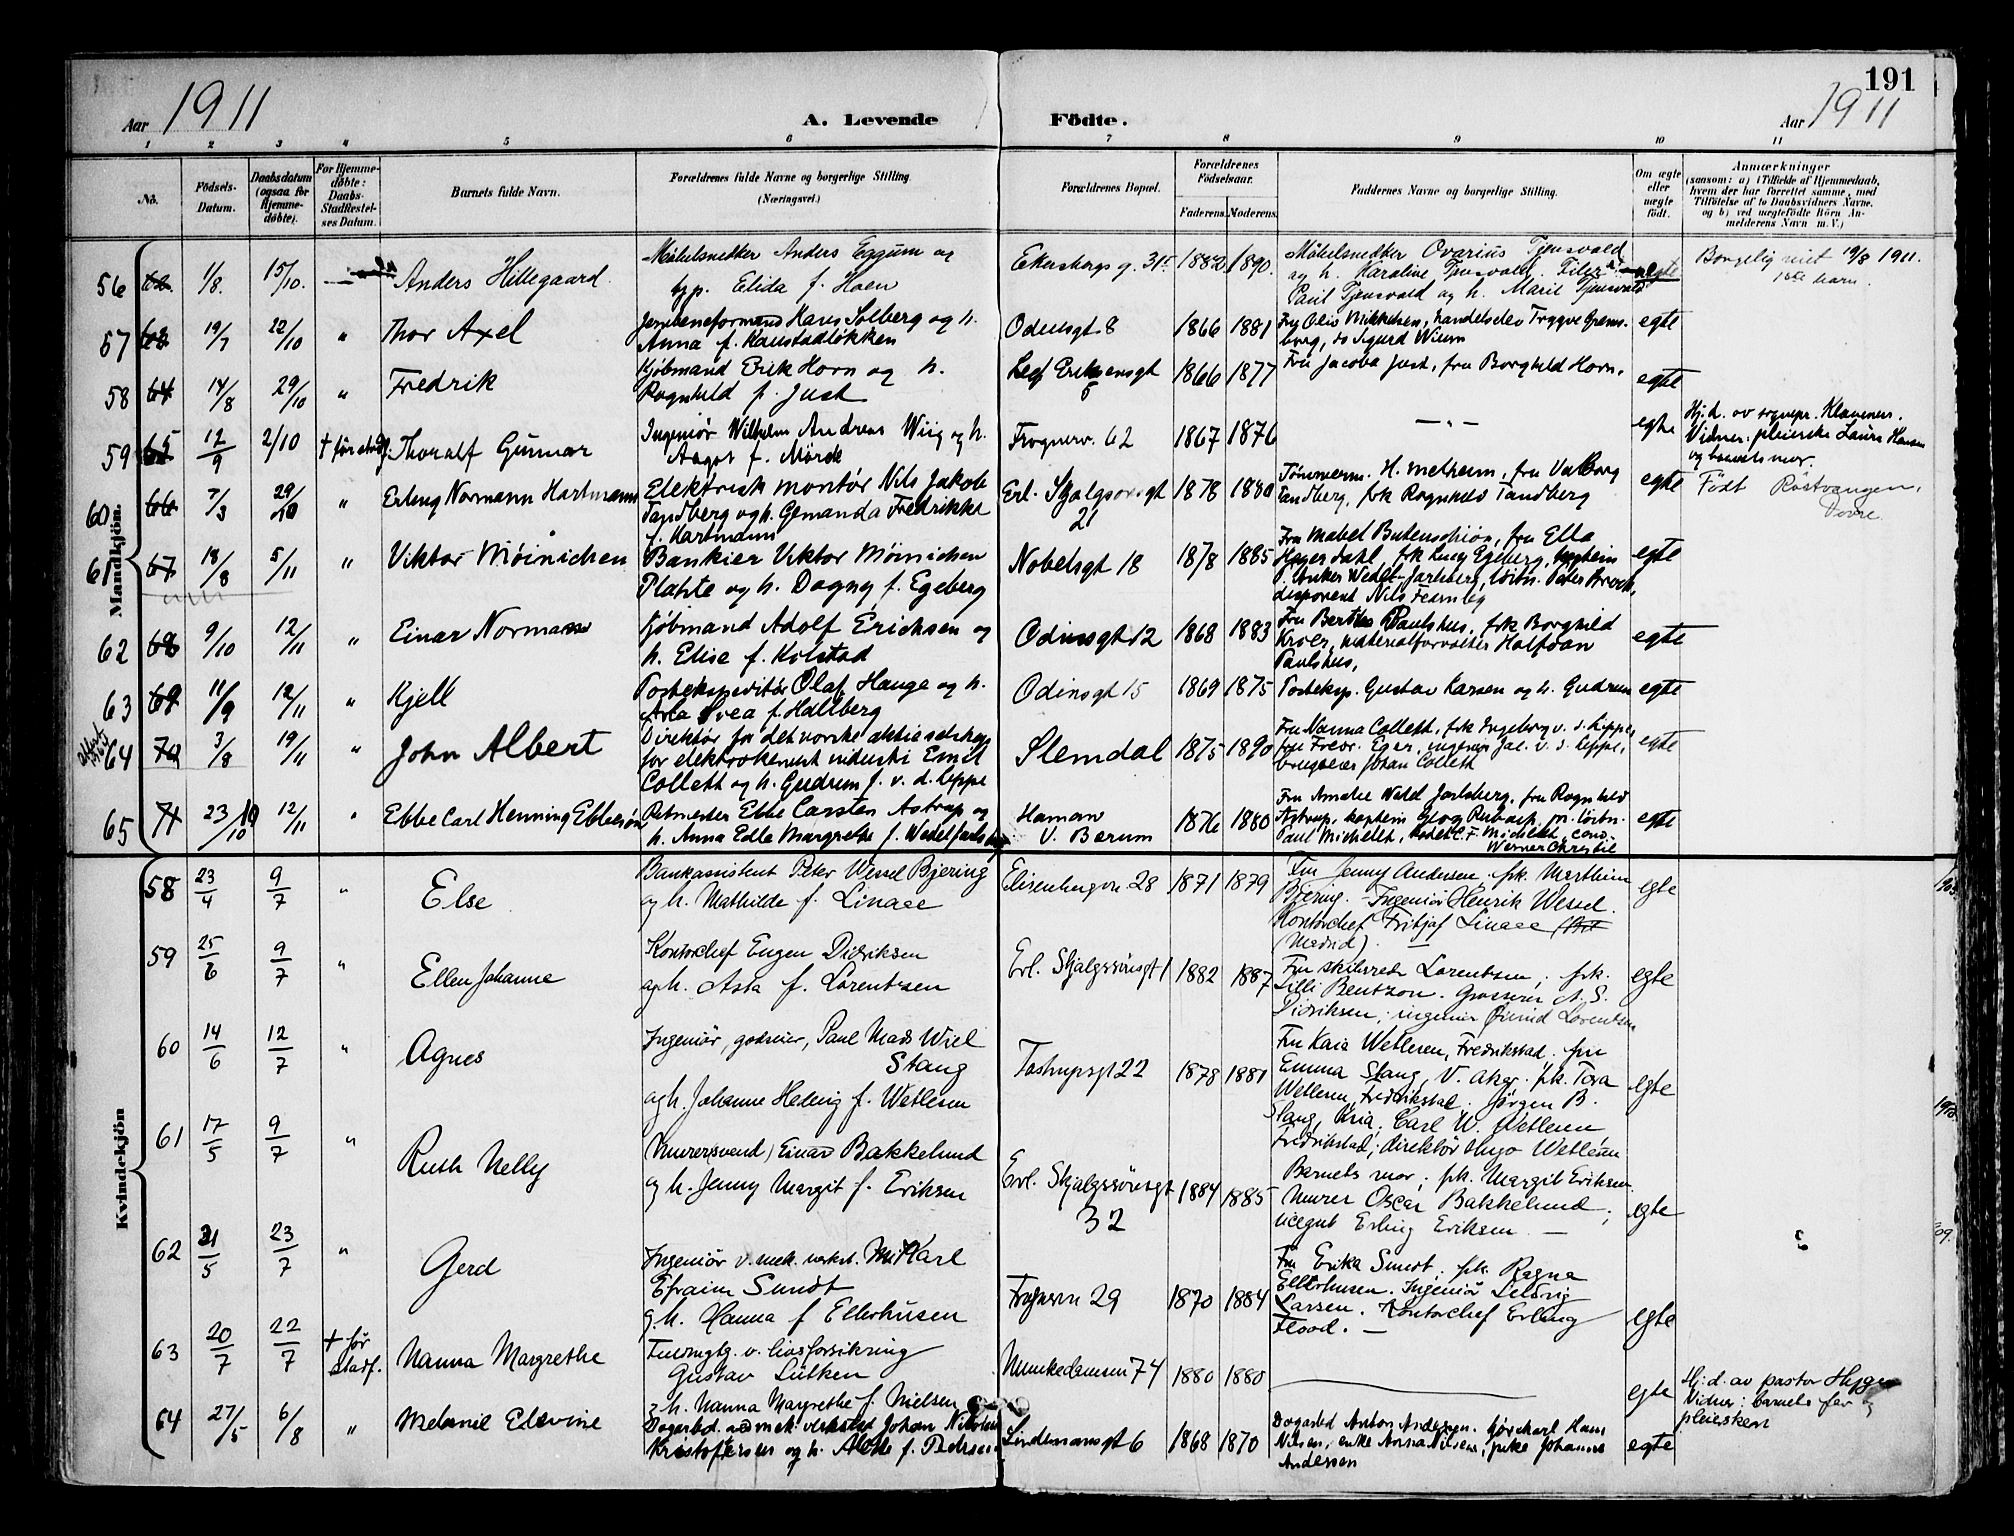 191
Aar 1911
A. Levende Födte.
Aar 1911
1 2 3 4 5 6 7 8 9 10 11
No.
Födsels-Datum.
Daabsdatum (ogsaa for Hjemmedöbte).
For Hjemmedöbte: Daabs-Stadfestelses Datum.
Barnets fulde Navn.
Forældrenes fulde Navne og borgerlige Stilling (Næringsvei.)
Forældrenes Bopæl.
Forældrenes Födselsaar.
Faderens. Moderens.
Faddernes Navne og borgerlige Stilling.
Om ægte eller uægte födt.
Anmærkninger
(saasom: a) i Tilfælde af Hjemmedaab, hvem der har forrettet samme, med Tilföielse af to Daabsvidners Navne, og b) ved uegtefödte Börn Anmelderens Navn m. V.)
Mandkjön.
56 1/8. 15/10. Anders Hillegaard Møbelsnedker Anders Eggum og Elida f. Hoen Ekersbergs g. 31 1882 1890. Møbelsnedker Ovarius Tjensvold og h. Karoline Tjensvold. Paul Tjensvold og h. Marie Tjensvold Borgelig viet 19/8 1911. 1ste barn.
57 19/7 22/10 " Thor Axel Hans Solberg og h. Anna f. Kaustadløkken Odinsgt. 8 1866 1881 Fru Oliv Mikkelsen, handelselev Trygve borg, do Sigurd Wium egte
58 64 14/8 29/10 " Fredrik Kjøbmand Erik Horn og h. Ragnhild f. Just Leif Eriksensgt 5 1866 1877 Fru Jacoba Just, fru Borghild Horn. egte
59 65 12/9 2/10 + før stadf. Thoralf Gunnar Ingeniør Wilhelm Andreas Wiig og h. Aagot f. Mørch Frognerv. 62 1867 1876 — " — egte Hj. d. av sognepr. Klaveness. Vidner: pleierske Laura Hansen og barnets mor.
60 66 7/3 29/10 " Erling Normann Hartmann Elektrisk montør Nils Jakob Tandberg og h. Gemanda Fredrikke f. Hartmann Erl. Skjalgssønsgt 21 1878 1880 Tømmerm. H. Melheim, fru Valborg Tandberg, frk Ragnhild Tandberg egte Født Røstvangen, Dovre.
61 67 13/8 5/11 " Viktor Møinichen Bankier Viktor Møinichen Plahte og h. Dagny f. Egeberg Nobelsgt 18 1878 1885 Fru Mabel Butenschøn, fru Ella Heyerdahl, frk Lucy Egeberg, P. Anker Wedel-Jarlsberg, løitn. Peter Broch, disponent Nils Fearnley egte
62 68 9/10 12/11 " Einar Normann Kjøbmand Adolf Ericksen og h. Elise f. Kolstad Odinsgt 12 1868 1883 Fru Berthe Paulshus, frk Borghild Kroer, materialforvalter Halfdan Paulshus, egte
63 69 11/9 12/11 " Kjell Postekspeditør Olaf Hauge og h. Svea f. Hallberg Odinsgt 15 1869 1875 Posteksp. Gustav Karsen og h. Gudrun egte
64 70 3/8 19/11 " John Albert Direktør for det norske aktieselskap for elektrokemisk industri Emil Collett og h. Gudrun f. v. d. Lippe Slemdal 1875 1890 Fru Nanna Collett, frk Ingeborg v. d. Lippe, fru Fredr. Eger, ingeniør Jac. v. d. Lippe, brugseier Johan Collett egte
65 71 23/10 12/11 " Ebbe Carl Henning Ebbesøn Ritmester Ebbe Carsten Astrup og h. Anna Edle Margrethe f. Wedel Jarlsberg V. Bærum 1876 1880 Fru Amalie Wedel Jarlsberg, fru Ragnhild Astrup, kaptein Georg pr. løitn. Paul Michelet, kadet C. F. Michelet, Werner Christie egte
Kvindekjön
58 23/4 9/7 " Else Bankassistent Peter Wessel Bjering og h. Mathilde f. Linaae Elisenbergvn 28 1871 1879 Fru Jenny Andersen. frk. Marthine Bjering. Ingeniør Henrik Wessel. Kontorchef Fritjof Linaae (Madrid). — egte
59 25/6 9/7 " Ellen Johanne Kontorchef Eugen Didriksen og h. Asta f. Lorentzen Erl. Skjalgssønsgt 1 1882 1887 Fru skibsreder Lorentzen; frk. Lilli Bentzon. Grosserer A. S. Didriksen; ingeniør Øivind Lorentzen egte
60 14/6 12/7 " Agnes Ingeniør, godseier, Paul Mads Wiel Stang og h. Johanne Helvig f. Wetlesen Tostrupsgt 22 1878 1881 Fru Kaia Wetlesen, Fredrikstad. fru Emma Stang, V. Aker. frk. Tora Wetlesen, Fredrikstad. Jørgen B. Stang, Kria; Carl W. Wetlesen Fredrikstad; direktør Hugo Wetlesen egte
61 17/5 9/7 " Ruth Nelly Murersvend Einar Bakkelund og h. Jenny Margit f. Eriksen Erl. Skjalgssønsgt 32 1884 1885 Barnets mor; frk. Margit Eriksen. Murer Oscar Bakkelund; visegut Erling Eriksen. — egte
62 21/5 23/7 " Gerd Ingeniør v. mek. verkst. Karl Efraim Sundt g. h. Hanna f Ellerhusen Frognervn 29 1870 1884 Fru Erika Sundt. frk. Ragna Ellerhusen. Ingeniør Ludvig Larsen. Kontorchef Erling Flood. — egte
63 20/7 22/7 + før stadf. Nanna Margrethe Fuldmgtg. v. livsforsikring Gustav Lütken g. h. Nanna Margrethe f. Nielsen Munkedamsvn 74 1880 1880 egte Hj: d. av pastor Vidner: barnets far og pleiersken
64 27/5 6/8 " Melanie Elevine Dagarbd. v. mek. verksted Johan Nikolai Kristoffersen og h. f. Pedersen Lindemansgt 6 1868 1870 Dagarbd Anton Andersen. kjørekarl Hans Nilsen; enke Anna Nilsen; pike Johanne Andersen egte